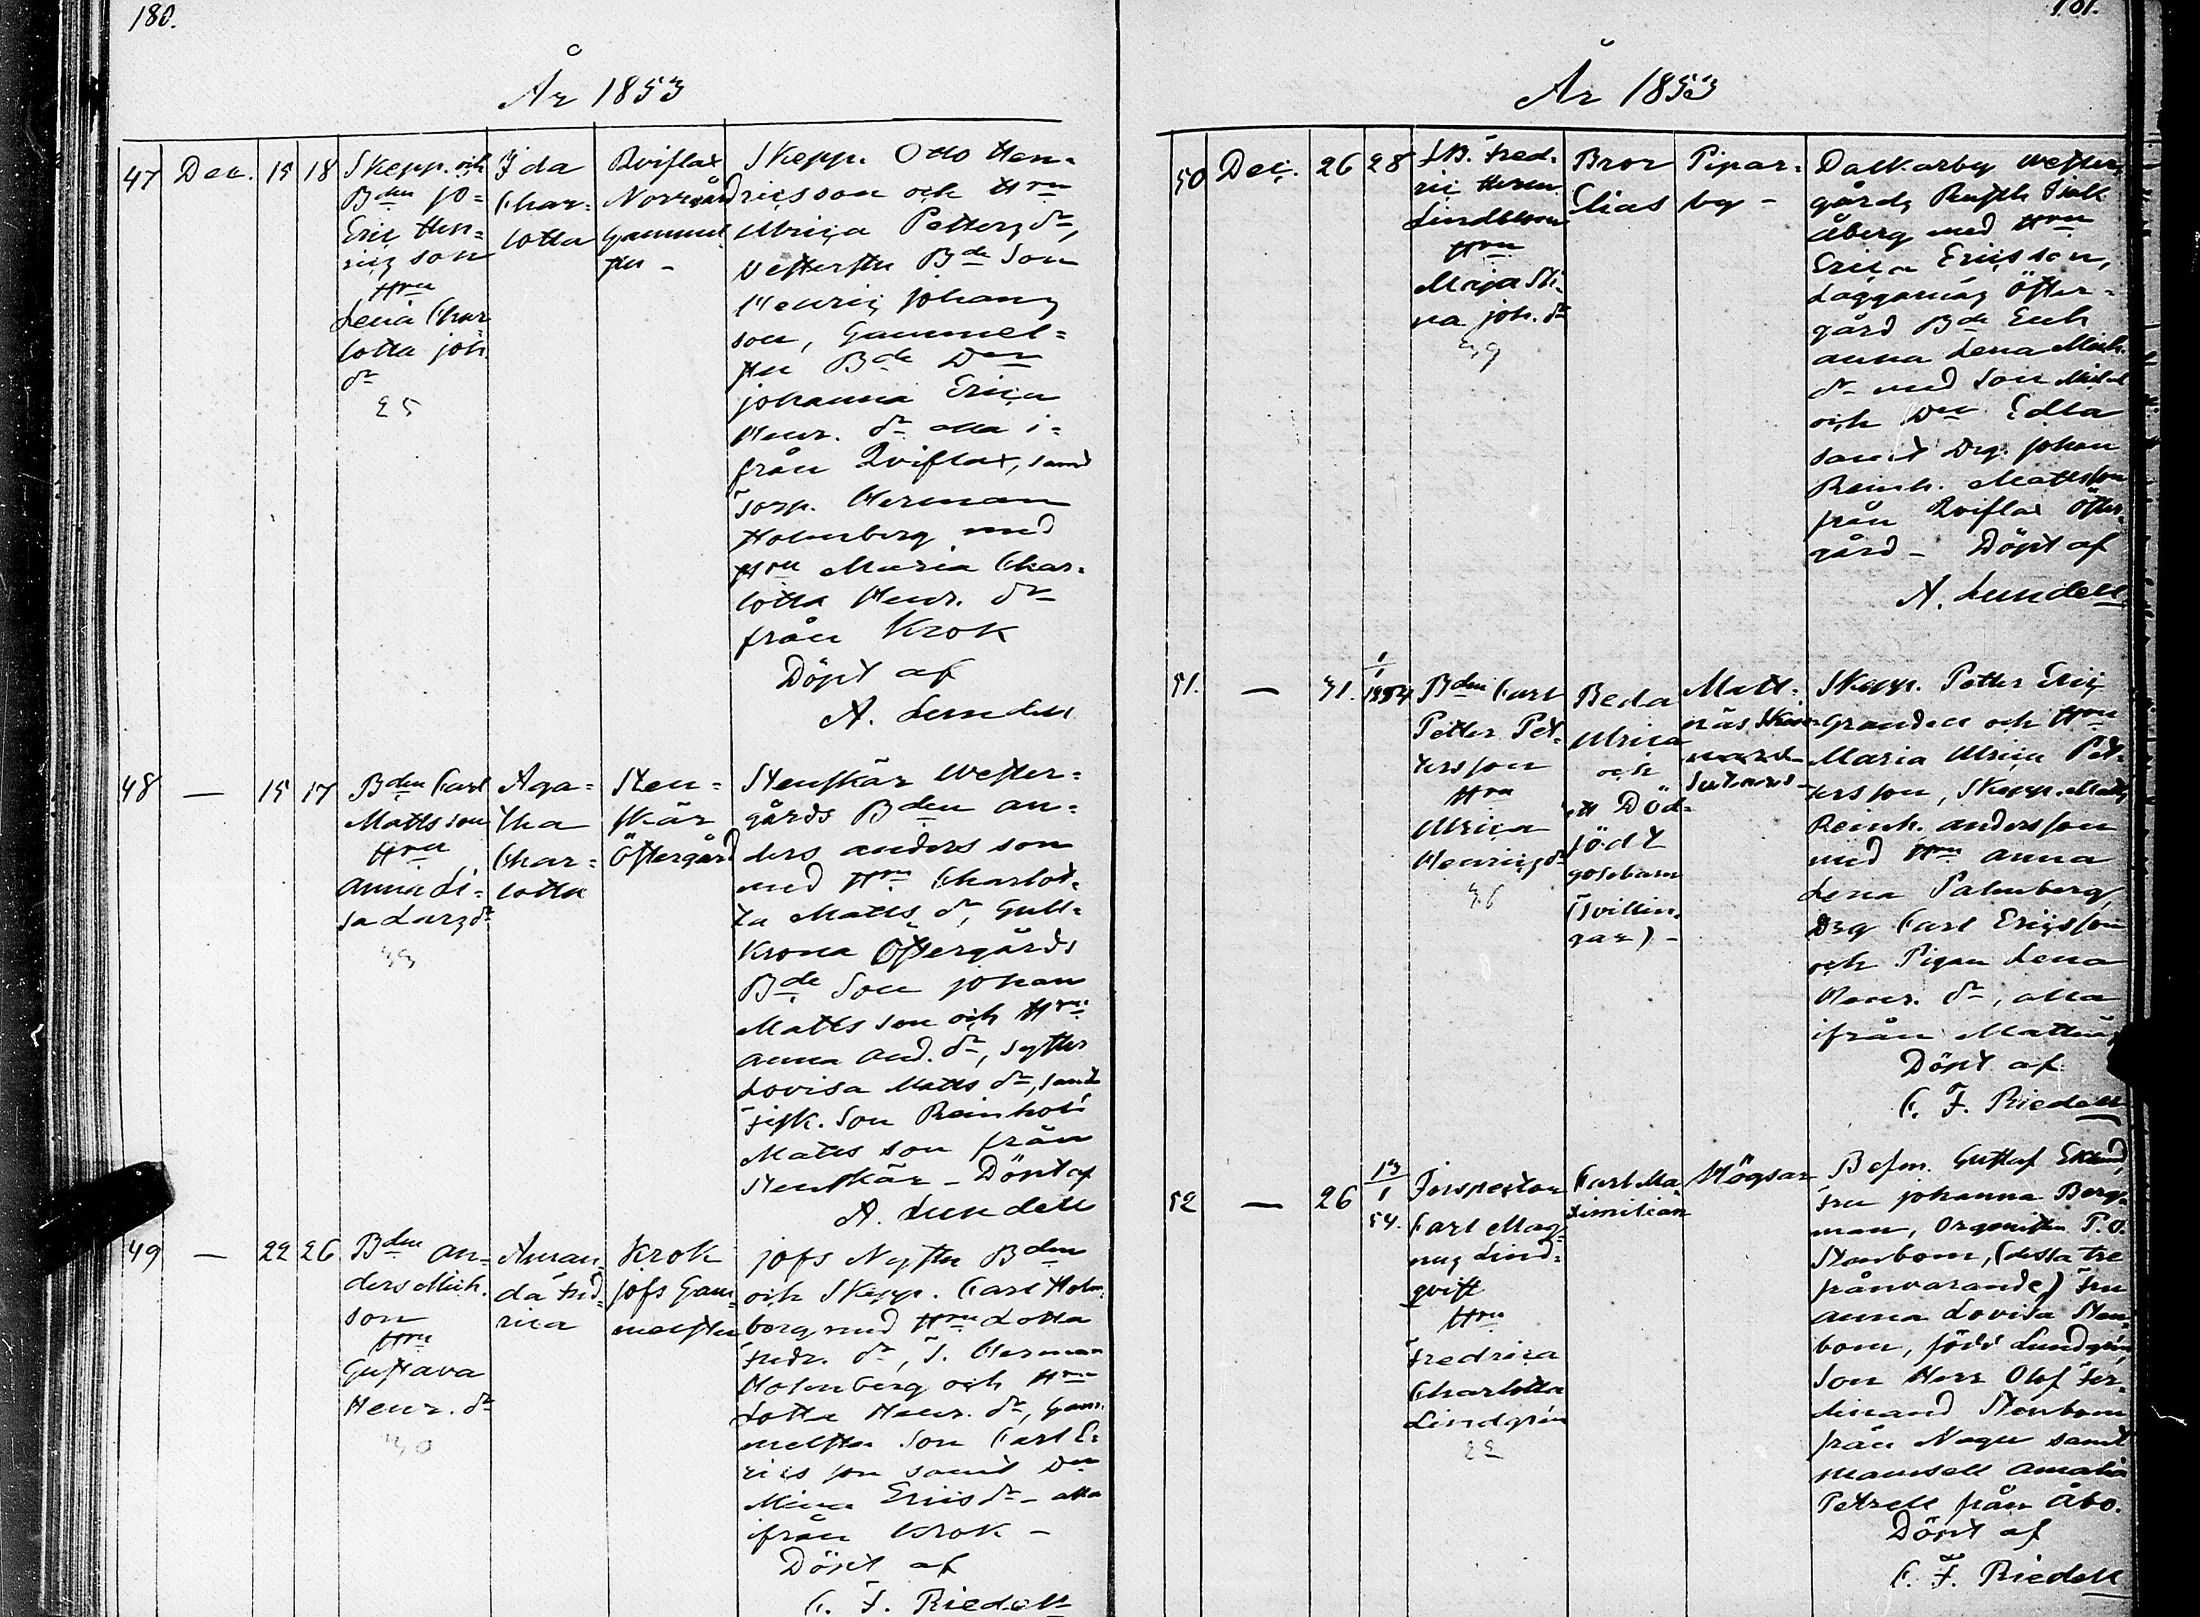 180.
År 1853
47 Dec. 15 18
Skepp. och
Bden Jo-
Eric Hen-
ricsson
Hru
Lena Char
lotta Joh.
dr
25
Ida
Char-
lotta
Qviflax
Norrgård
Gammel
Skepp. Otto Hen-
ricsson och Hru
Ulrica Petters dr,
Bde Son
Henric Johans
son, Gammel-
Bde Don
Johanna Erica
Henr. dr alla i-
från Qviflax, samt
Torp. Herman
Holmberg med
Hru Maria Char-
lotta Henr. dr
från Krok
Döpt af
A. Lundell
48 — 15 17
Bden Carl
Mattsson
Hru
Anna Li-
sa Lars dr
33
Aga-
tha
Char-
lotta
Sten-
skär
Östergård
Stenskär Wester-
gårds Bden An-
ders Anders son
med Hru Charlot-
ta Matts dr, Gull-
krona Östergårds
Bde Son Johan
Matts son och Hru
Anna And. dr, Syster
Lovisa Matts dr, samt
Fisk. Son Reinhold
Matts son från
Stenskär – Döpt af
A. Lundell
49 — 22 26
Bden An-
ders Mich.
son
Hru
Gustava
Henr. dr
30
Aman-
da Fred-
rica
Krok
Jofs Gam-
melsten
Jofs Bden
och Skepp. Carl Holm-
berg med Hru Lotta
Fredr. dr, T. Herman
Holmberg och Hru
Lotta Henr. dr, Gam-
son Carl E-
rics son samt Dn
Mina Erics dr – alla
ifrån Krok –
Döpt af
C. F. Riedell
181.
År 1853
50 Dec. 26 28
Fred-
ric Herm.
Lindblom
Hru
Maja Sti-
na Joh. dr
39
Bror
Elias
Pipar-
by –
Dalkarby Wester
gårds
Åberg med Hru
Erica Ericsson,
Laggarnäs Öster-
gård Bde Enk
Anna Lena Mich.
dr med Son
och Dn Edla
samt Drg. Johan
Reinh. Mattsson
från Qviflax Öster-
gård – Döpt af
A. Lundell
51. — 31. 1/1 1854
Bden Carl
Petter Pet-
tersson
Hru
Ulrica
Henrics dr
36
Beda
Ulrica
och
ett Död-
födt
gossbarn
(Tvillin-
gar) –
Matt-
näs
Skepp. Petter Eric
Grandell och Hru
Maria Ulrica Pet-
tersson, Skepp. Matts
Reinh. Andersson
med Hru Anna
Lena Palmberg,
Drg Carl Ericsson
och Pigan Lena
Henr. dr, alla
ifrån Mattnäs
Döpt af
C. F. Riedell
52 — 26 13/1 54.
Inspector
Carl Mag-
nus Lind-
qvist
Hru
Fredrica
Charlotta
Lindgrén
22
Carl Ma
ximilian
Högsar
Befm. Gustaf Eklund,
Fru Johanna Berg-
man, Organisten P. O.
Stenbom, (dessa tre
frånvarande) Fru
Anna Lovisa Sten-
bom, född Lundgrén,
Son Herr Olof Fer-
dinand Stenbom
från Nagu samt
Mamsell Amalia
Petrell från Åbo.
Döpt af
C. F. Riedell